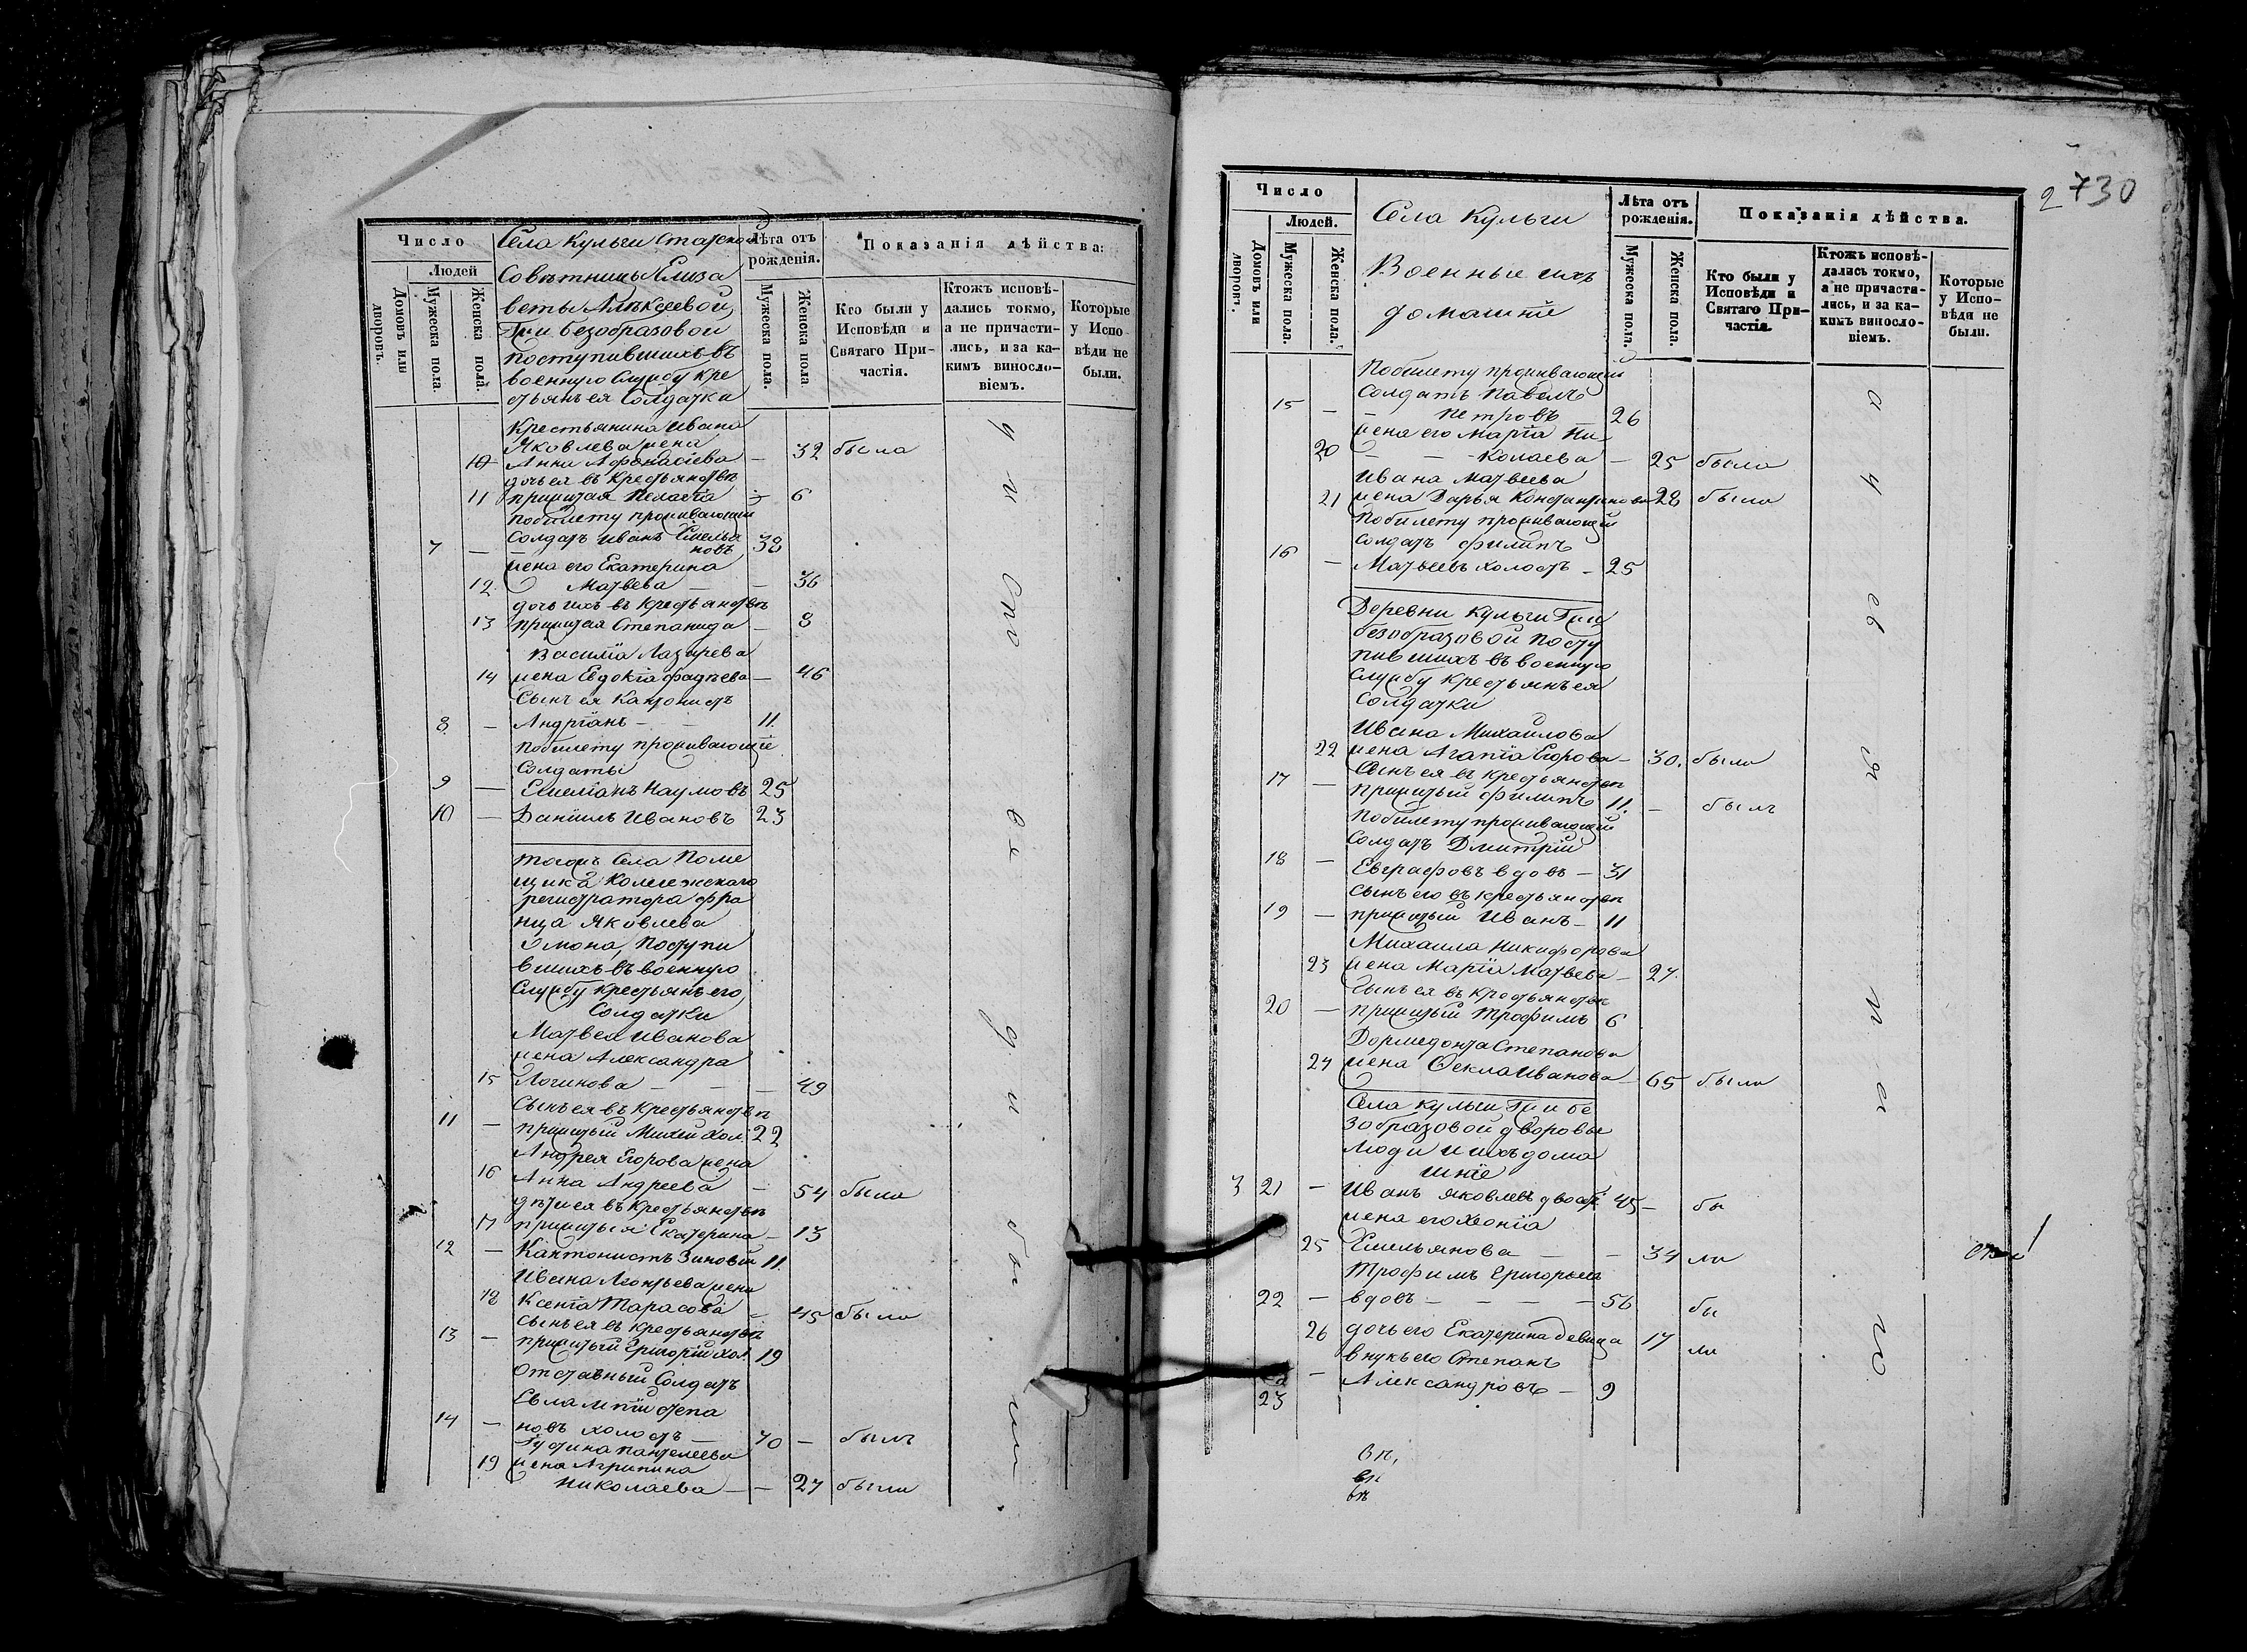 Число
Людей
Домовъ или дворовъ.
Мужеска пола.
Женска пола.
Села Кульги Статской
Совѣтницы Елиза
веты Алѣксеевой
Гжи безобразовой
поступившихъ въ
военную службу кре
стьянъ ея Солдатки
Лѣта отъ рожденія.
Мужеска пола.
Женска пола
Показанія дѣйства:
Кто были у Исповѣди и Святаго При-
частія.
Ктожъ исповѣ-
дались токмо,
а не причасти-
лись, и за ка-
кимъ винословіемъ.
Которые
у Испо
вѣди не
были.
Крестьянина Ивана
Яковлева жена
10 Анна Афонасіева — 32 была
дочь ея въ крестьянствѣ
11 прижитая Пелагія 6
по билету проживающій
7 — Солдатъ Иванъ Емелья
новъ 38
жена его Екатерина
12 Матвева — — 36
дочь ихъ въ крестьянствѣ
13 прижитая Степанида — 8
Василія Лазарева
14 жена Евдокія фадѣева — 46
Сынъ ея Кантонистъ
8 — Андріанъ — 11
по билету проживающіе
Солдаты
9 — Емеліанъ Наумовъ 25
10 — Даніилъ Ивановъ 23
тогожъ Села Поме
щика Колежскаго
регистратора фра
нца Яковлева
Поступи
вшихъ въ военную
службу крестьянъ его
Солдатки
Матвея Иванова
жена Александра
15 Логинова — — — 49
Сынъ ея въ крестьянствѣ
11 — прижитый Михей хол. 22
Андрея Егорова жена
16 Анна Андреева — 54 была
дѣти ея въ крестьянствѣ
17 прижитыя Екатерина — 13
12 — Кантонистъ Зиновій 11
Ивана Леонтьева жена
18 Ксенія Тарасова — 45 была
сынъ ея въ крестьянствѣ
13 — прижитый Григорій хол. 19
Отставный Солдатъ
Евлампій Степа
14 — новъ холостъ — 70 — былъ
Устина Пантелеева
19 жена Агрипина
Николаева — — 27 была
2 730
Число
Людей.
Домовъ или дворовъ.
Мужеска пола.
Женска пола.
Села Кульги
Военные ихъ
домашнiе
Лѣта отъ рожденія.
Мужеска пола.
Женска пола.
Показанія дѣйства.
Кто были у
Исповѣди и
Святаго При-
частія.
Ктожъ исповѣ-
дались токмо,
а не причасти-
лись, и за ка-
кимъ винословіемъ.
Которые
у Испо-
вѣди не
были.
По билету проживающій
Солдатъ Павелъ
15 — — Петровъ 26
жена его Марія Ни-
20 — — колаева — 25 была
Ивана Матвеева
21 жена Дарья Константинова 28 была
По билету проживающій
Солдатъ филипъ
16 — Матвеевъ холостъ — 25
Деревни Кульги Гжи
безобразовой Посту
пившихъ въ военную
службу крестьянъ ея
Солдатки
Ивана Михайлова
22 жена Агапія Егорова — 30. была
Сынъ ея въ крестьянствѣ
17 — прижитый филипъ 11. — былъ
По билету проживающій
Солдатъ Дмитрій
18 — Евграфовъ вдовъ — 31
сынъ его въ крестьянствѣ
19 — прижитый Иванъ — 11
Михаила Никифорова
23 жена Марія Матвева — 27.
Сынъ ея въ крестьянствѣ
20 — прижитый Трофимъ 6
Дормедонта Степанова
24 жена Фекла Иванова — 65 была
Села Кульги Гжи бе
зобразовой дворовые
Люди и ихъ дома
шніе
3 21 — Иванъ Яковлевъ 45 — бы
жена его Хеонія
25 Емельянова — — 34 ли
Трофимъ Григорьевъ
22 — вдовъ — — — — 56 бы
26 дочь его Екатерина девица 17 ли
внукъ его Степанъ
23 — Александровъ — 9